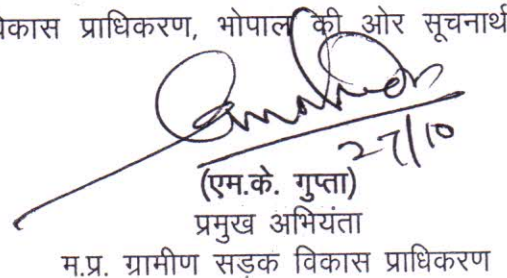 विकास प्राधिकरण, भोपाल की ओर सूचनार्थ
27/10
(एम.के. गुप्ता)
प्रमुख अभियंता
म.प्र. ग्रामीण सड़क विकास प्राधिकरण